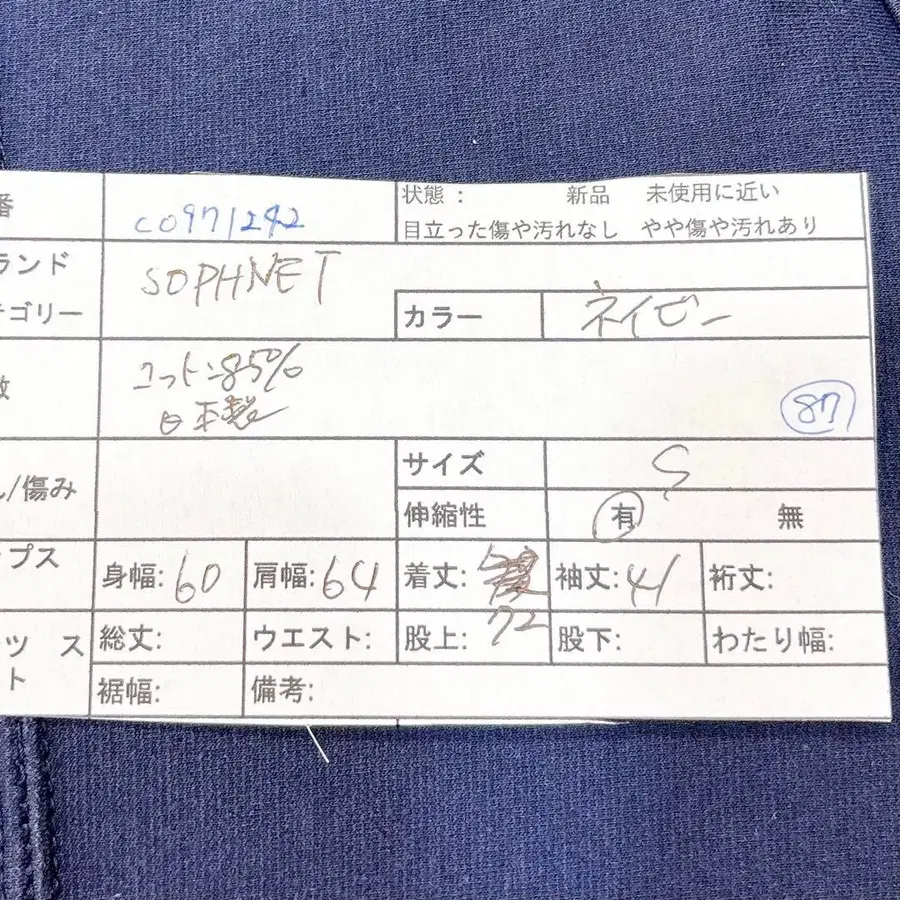 番 CO971242 状態： 新品 未使用に近い
目立った傷や汚れなし やや傷や汚れあり
ランド SOPHNET
テゴリー カラー ネイビー
徴 コットン85%
日本製 87
/傷み サイズ S
伸縮性 有 無
ップス 身幅:60 肩幅:64 着丈: 72 袖丈:41 裄丈:
ーツ ス 総丈: ウエスト: 股上: 股下: わたり幅:
ート 裾幅: 備考: